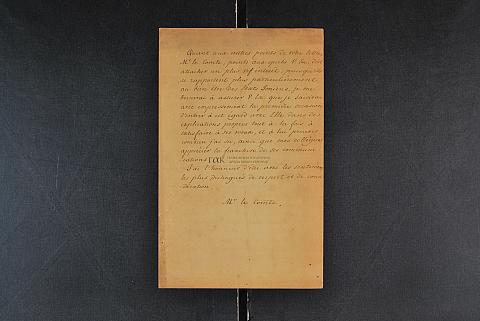 Quant aux autres points de votre lettre,
Mr. le Comte, points auxquels V. Ex. doit
attacher un plus vif intérêt, puisqu'ils
se rapportent plus particulièrement
au bien être des Etats Ioniens, je me
bornerai à assurer V. Ex. que je saisirai
avec empressement la première occasion
d'entrer à cet égard avec Elle dans des
explications propres tout à la fois à
satisfaire à ses vœux, et à lui prouver
combien j'ai su, ainsi que mes collègues
apprécier la franchise de ses communi
cations
J'ai l'honneur d'être avec les sentimens
les plus distingués de respect et de consi
dération
Mr. le Comte.